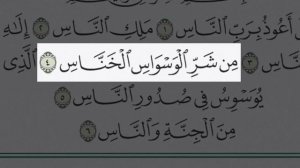 أَعُوذُ بِرَبِّ ٱلنَّاسِ ١ مَلِكِ ٱلنَّاسِ ٢ إِلَٰهِ
٣ مِن شَرِّ ٱلْوَسْوَاسِ ٱلْخَنَّاسِ ٤ ٱلَّذِى
يُوَسْوِسُ فِى صُدُورِ ٱلنَّاسِ ٥
مِنَ ٱلْجِنَّةِ وَٱلنَّاسِ ٦